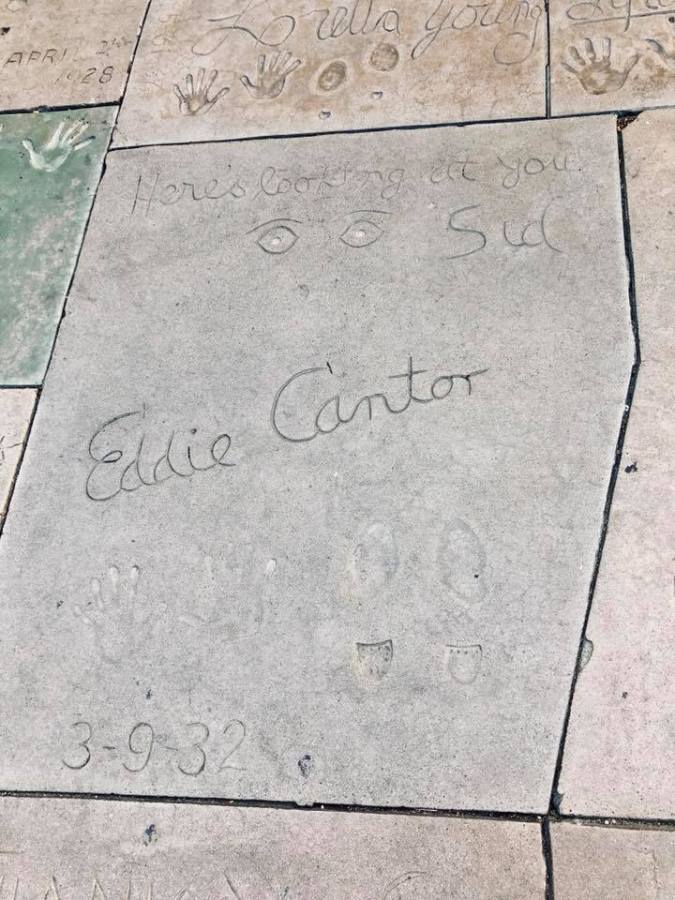 APRIL 24
1928
Loretta Young
Here's looking at you
Sid
Eddie Cantor
3-9-32